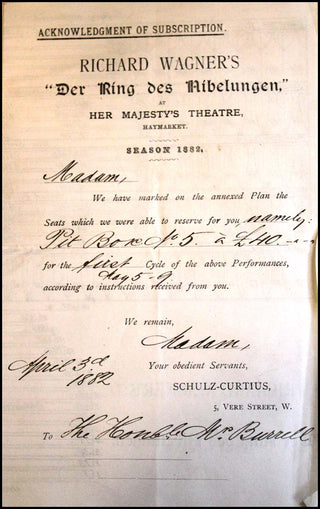 ACKNOWLEDGMENT OF SUBSCRIPTION.
RICHARD WAGNER'S
"Der Ring des Nibelungen,"
AT
HER MAJESTY'S THEATRE,
HAYMARKET.
SEASON 1882.
Madam,
We have marked on the annexed Plan the
Seats which we were able to reserve for you namely:
Pit Box No. 5. à £40.-.-
for the first Cycle of the above Performances,
May 5-9
according to instructions received from you.
We remain,
Madam,
Your obedient Servants,
April 3d
1882
SCHULZ-CURTIUS,
5, VERE STREET, W.
To The Honble Mrs Burrell